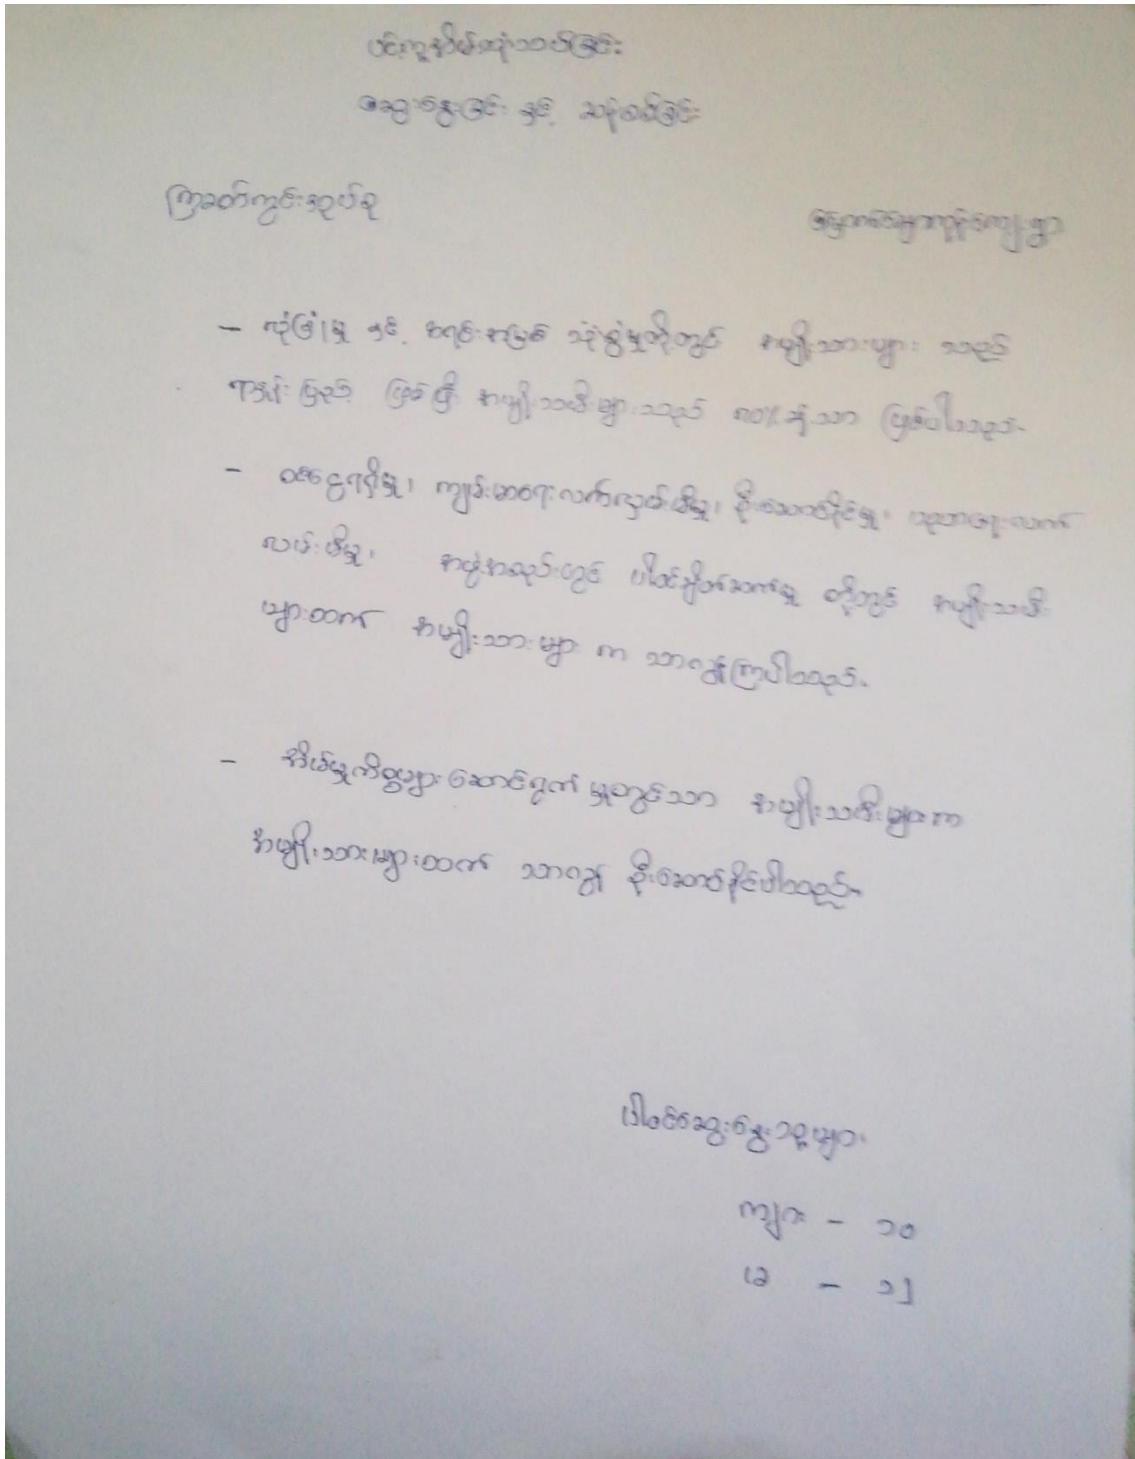 ပင့်ကူအိမ်ဆုံးသတ်ခြင်း
ဆွေးနွေးခြင်း နှင့် ဆန်းစစ်ခြင်း
ကြခတ်ကွင်းအုပ်စု
ကျေးရွာ
– လုံခြုံမှု နှင့် အရင်းအမြစ် သုံးစွဲမှုတို့တွင် အမျိုးသားများ သည်
ရာနှုန်းပြည့် ဖြစ်ပြီး အမျိုးသမီးများသည် ၈၀% ခန့်သာ ဖြစ်ပါသည်။
– ဝင်ငွေရရှိမှု၊ ကျန်းမာရေးလက်လှမ်းမီမှု၊ ဦးဆောင်နိုင်မှု၊ ပညာရေးလက်
လှမ်းမီမှု၊ အဖွဲ့အစည်းတွင် ပါဝင်ချိတ်ဆက်မှု တို့တွင် အမျိုးသမီး
များထက် အမျိုးသားများ က သာလွန်ကြပါသည်။
– အိမ်မှုကိစ္စများဆောင်ရွက်မှုတွင်သာ အမျိုးသမီးများက
အမျိုးသားများထက် သာလွန် ဦးဆောင်နိုင်ပါသည်။
ပါဝင်ဆွေးနွေးသူများ
ကျား – ၁၀
မ – ၁၂